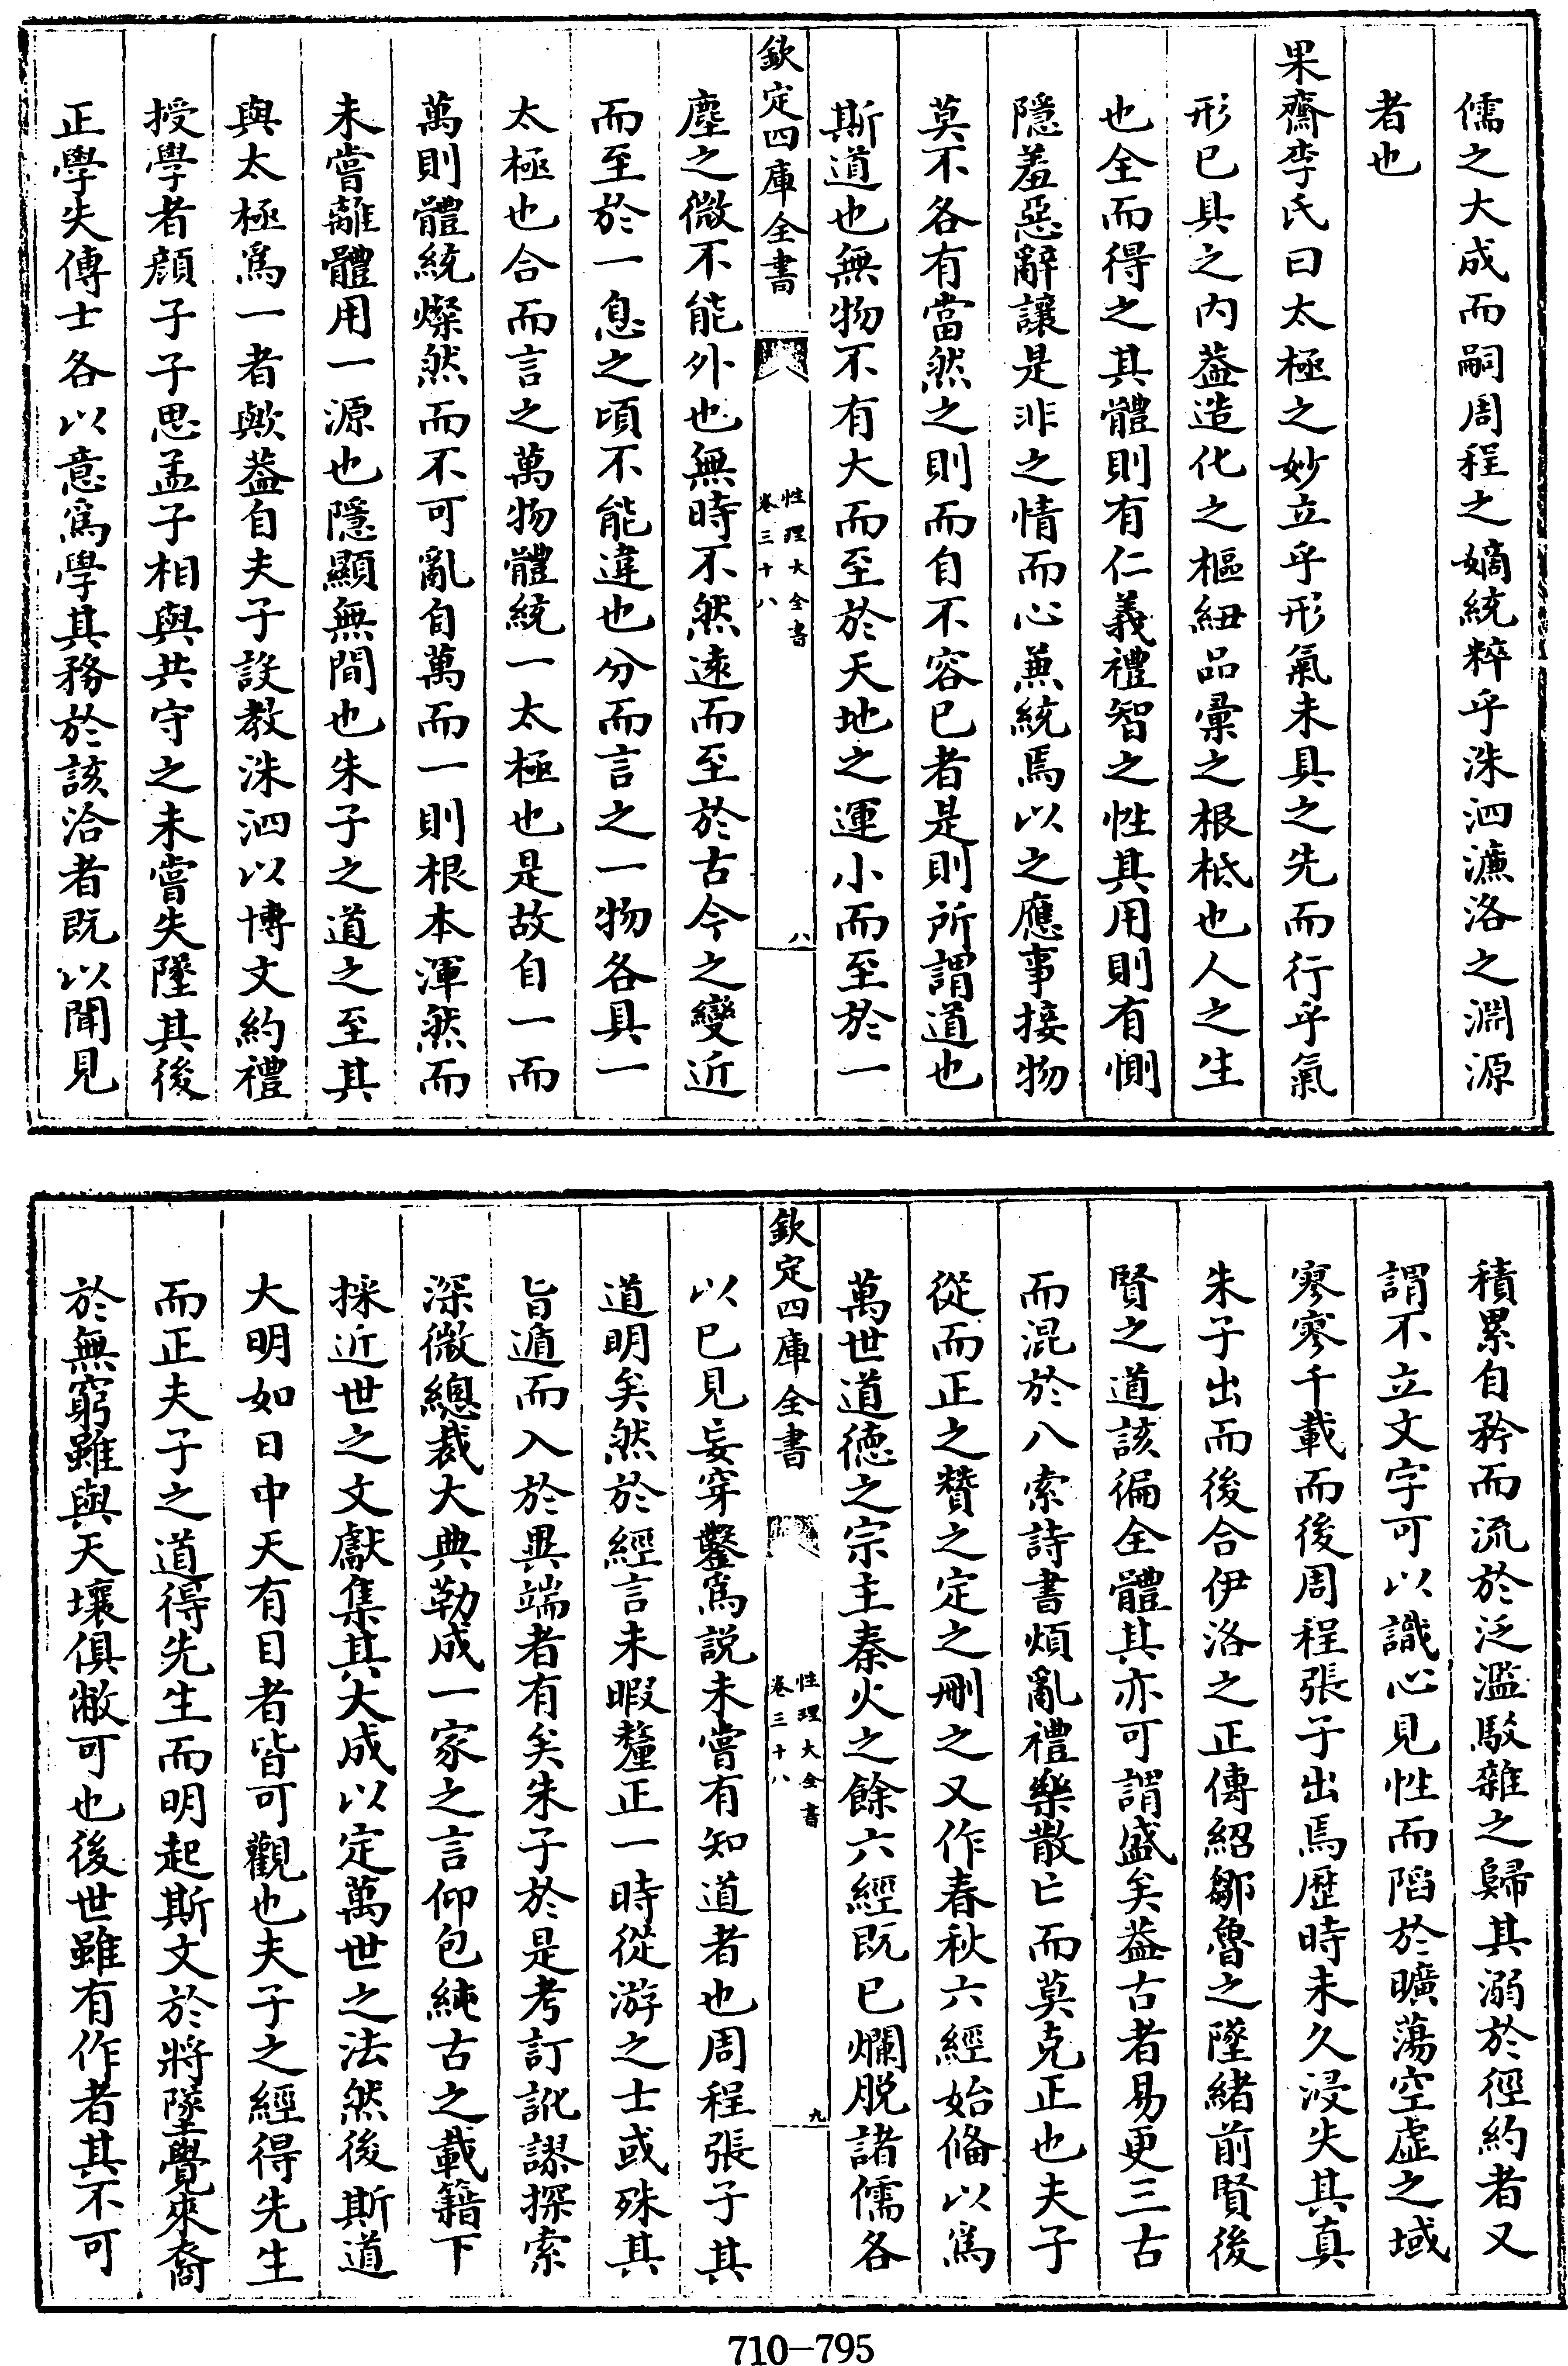 儒之大成而嗣周程之嫡統粹乎洙泗濂洛之淵源
者也
果齋李氏曰太極之妙立乎形氣未具之先而行乎氣
形已具之内葢造化之樞紐品彚之根柢也人之生
也全而得之其體則有仁義禮智之性其用則有惻
隱羞惡辭讓是非之情而心兼統焉以之應事接物
莫不各有當然之則而自不容已者是則所謂道也
斯道也無物不有大而至於天地之運小而至於一
欽定四庫全書
性理大全書
卷三十八
八
塵之微不能外也無時不然遠而至於古今之變近
而至於一息之頃不能違也分而言之一物各具一
太極也合而言之萬物體統一太極也是故自一而
萬則體統燦然而不可亂自萬而一則根本渾然而
未嘗離體用一源也隱顯無間也朱子之道之至其
與太極爲一者歟葢自夫子設教洙泗以博文約禮
授學者顔子子思孟子相與共守之未嘗失墜其後
正學失傳士各以意爲學其務於該洽者既以聞見
積累自矜而流於泛濫駁雜之歸其溺於徑約者又
謂不立文字可以識心見性而陷於曠蕩空虛之域
寥寥千載而後周程張子出焉歴時未久浸失其真
朱子出而後合伊洛之正傳紹鄒魯之墜緒前賢後
賢之道該徧全體其亦可謂盛矣葢古者易更三古
而混於八索詩書煩亂禮樂散亡而莫克正也夫子
從而正之贊之定之刪之又作春秋六經始備以爲
萬世道德之宗主秦火之餘六經既已爛脱諸儒各
欽定四庫全書
性理大全書
卷三十八
九
以已見妄穿鑿爲説未嘗有知道者也周程張子其
道明矣然於經言未暇釐正一時從游之士或殊其
旨遁而入於異端者有矣朱子於是考訂訛謬探索
深微總裁大典勒成一家之言仰包純古之載籍下
採近世之文獻集其大成以定萬世之法然後斯道
大明如日中天有目者皆可觀也夫子之經得先生
而正夫子之道得先生而明起斯文於將墜覺來裔
於無窮雖與天壤俱敝可也後世雖有作者其不可
710－795